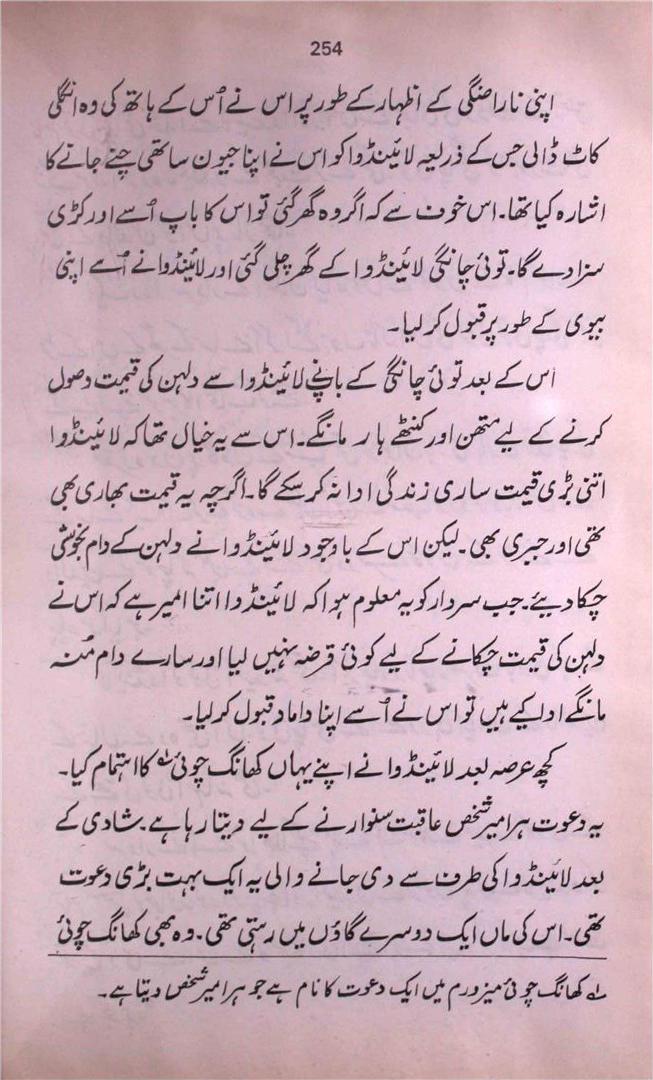 254
اپنی ناراضگی کے اظہار کے طور پر اس نے اُس کے ہاتھ کی وہ انگلی
کاٹ ڈالی جس کے ذریعہ لائینڈوا کو اس نے اپنا جیون ساتھی چنے جانے کا
اشارہ کیا تھا۔ اس خوف سے کہ اگر وہ گھر گئی تو اس کا باپ اُسے اور کڑی
سزا دے گا۔ توئی چانگی لائینڈوا کے گھر چلی گئی اور لائینڈوا نے اُسے اپنی
بیوی کے طور پر قبول کر لیا۔
اس کے بعد توئی چانگی کے باپ نے لائینڈوا سے دلہن کی قیمت وصول
کرنے کے لیے متھن اور کنٹھے ہار مانگے۔ اس سے یہ خیال تھا کہ لائینڈوا
اتنی بڑی قیمت ساری زندگی ادا نہ کر سکے گا۔ اگرچہ یہ قیمت بھاری بھی
تھی اور جبری بھی۔ لیکن اس کے باوجود لائینڈوا نے دلہن کے دام بخوشی
چکا دیئے۔ جب سردار کو یہ معلوم ہوا کہ لائینڈوا اتنا امیر ہے کہ اس نے
دلہن کی قیمت چکانے کے لیے کوئی قرضہ نہیں لیا اور سارے دام مُنہ
مانگے ادا کیے ہیں تو اس نے اُسے اپنا داماد قبول کر لیا۔
کچھ عرصہ بعد لائینڈوا نے اپنے یہاں کھانگ چوئی لہ کا اہتمام کیا۔
یہ دعوت ہر امیر شخص عاقبت سنوارنے کے لیے دیتا رہا ہے۔ شادی کے
بعد لائینڈوا کی طرف سے دی جانے والی یہ ایک بہت بڑی دعوت
تھی۔ اس کی ماں ایک دوسرے گاؤں میں رہتی تھی۔ وہ بھی کھانگ چوئی
لہ کھانگ چوئی میزورم میں ایک دعوت کا نام ہے جو ہر امیر شخص دیتا ہے۔